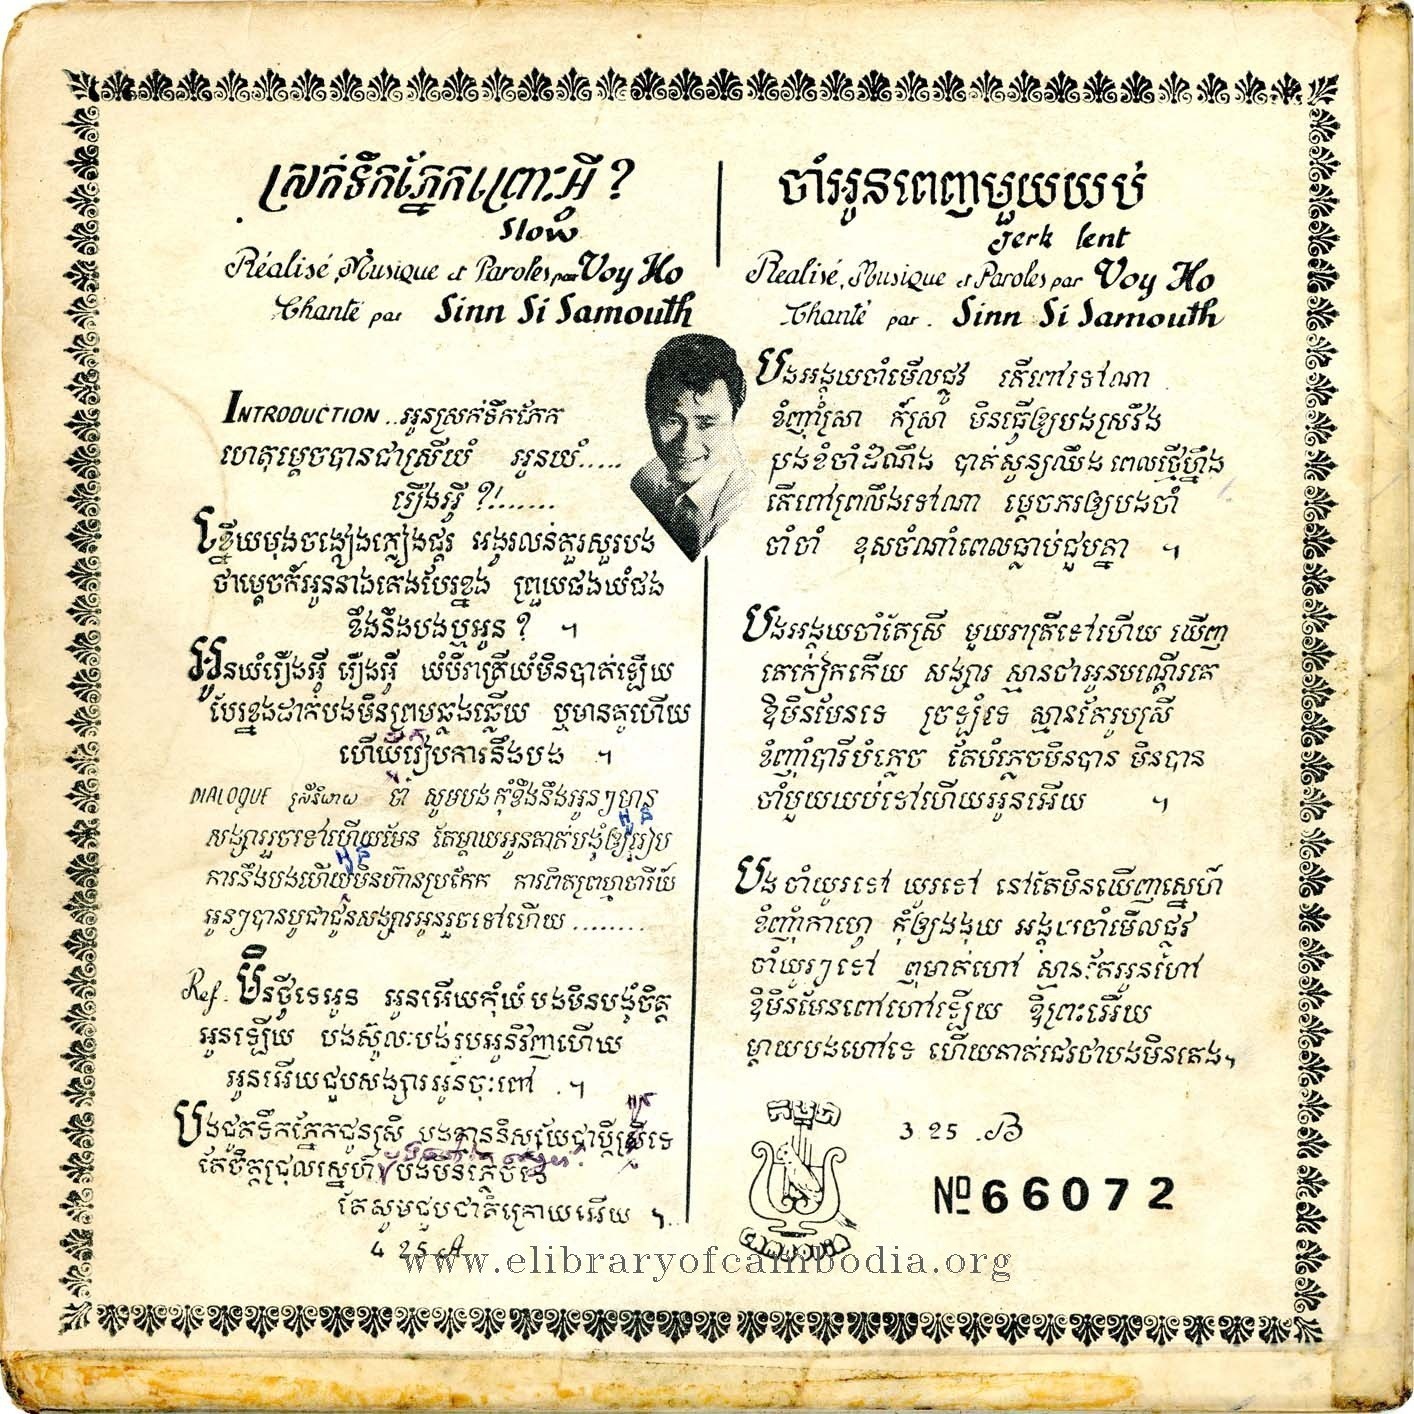 ស្រក់ទឹកភ្នែកព្រោះអី ?
Slow
Réalisé, Musique et Paroles par Voy Ho
Chanté par Sinn Si Samouth
INTRODUCTION .. អូនស្រក់ទឹកភ្នែក
ហេតុម្ដេចបានជាស្រីយំ អូនយំ.....
រឿងអ្វី ?!.......
ខ្នើយមុងចង្កៀងភ្លៀងផ្គរ អង្វរលន់គួរសួរបង
ថាម្ដេចក៏អូននាងគេងបែរខ្នង ព្រួយផងយំផង
ខឹងនឹងបងឬអូន ? ។
អូនយំរឿងអ្វី រឿងអ្វី យំបីរាត្រីយំមិនបាត់ឡើយ
បែរខ្នងដាក់បងមិនព្រមឆ្លងឆ្លើយ ឬមានគូហើយ
ហើយរៀបការនឹងបង ។
DIALOQUE ស្រីនិយាយ ចាំ សូមបងកុំខឹងនឹងអូនៗមាន
សង្សាររួចទៅហើយមែន តែម្ដាយអូនគាត់បង្ខំឲ្យរៀប
អូន
ការនឹងបងហើយមិនហ៊ានប្រកែក ការពិតព្រហ្មចារីយ៍
អូន
អូនៗបានបូជាជូនសង្សារអូនរួចទៅហើយ ........
Ref. មិនថ្វីទេអូន អូនអើយកុំយំ បងមិនបង្ខំចិត្ត
អូនឡើយ បងស៊ូលះបង់រូបអូនវិញហើយ
អូនអើយជួបសង្សារអូនចុះពៅ . ។
បងជូតទឹកភ្នែកជូនស្រី បងគ្មាននិស្ស័យជាប្ដីស្រីទេ
តែចិត្តជ្រុលស្នេហ៍ បងមិនភ្លេចទេ
តែសូមជួបជាតិក្រោយអើយ ។
4 25 A
ចាំអូនពេញមួយយប់
Jerk lent
Réalisé, Musique et Paroles par Voy Ho
Chanté par. Sinn Si Samouth
បងអង្គុយចាំមើលផ្លូវ តើពៅទៅណា
ខំញ៉ាំស្រា ក៏ស្រា មិនធ្វើឲ្យបងស្រវឹង
ប្រឹងខំចាំដំណឹង បាត់សូន្យឈឹង ពេលថ្មើរហ្នឹង
តើពៅព្រលឹងទៅណា ម្ដេចភរឲ្យបងចាំ
ចាំចាំ ខុសចំណាំពេលធ្លាប់ជួបគ្នា ។
បងអង្គុយចាំតែស្រី មួយរាត្រីទៅហើយ ឃើញ
គេកៀកកើយ សង្សារ ស្មានថាអូនបណ្ដើរគេ
ឱមិនមែនទេ ច្រឡំទេ ស្មានតែរូបស្រី
ខំញ៉ាំបារីបំភ្លេច តែបំភ្លេចមិនបាន មិនបាន
ចាំមួយយប់ទៅហើយអូនអើយ ។
បងចាំយូរទៅ យូរទៅ នៅតែមិនឃើញស្នេហ៍
ខំញ៉ាំកាហ្វេ កុំឲ្យងងុយ អង្គុយចាំមើលផ្លូវ
ចាំយូរៗទៅ ឮមាត់ហៅ ស្មានតែអូនហៅ
ឱមិនមែនពៅហៅឡើយ ឱព្រះអើយ
ម្ដាយបងហៅទេ ហើយគាត់ជេរថាបងមិនគេង។
កម្ពុជា
3 25 .B
No 66072
www.elibraryofcambodia.org